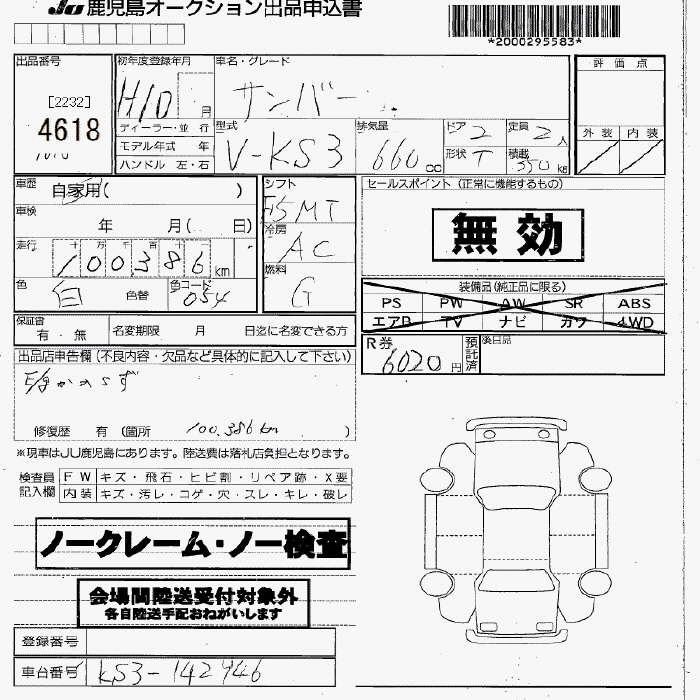 JU 鹿児島オークション出品申込書
*2000295583*
出品番号
[2232]
4618
初年度登録年月
H10 月
ディーラー・並 行
モデル年式 年
ハンドル 左・右
車名・グレード
サンバー
型式
V-KS3
排気量
660 cc
ドア 2
形状 T
定員 2 人
積載 350 kg
評価点
外装 内装
車歴 自家用( )
車検 年 月( 日)
走行 十 万 千 百 十 一
100386 km
色 白 色替
色コード 054
シフト
F5MT
冷房
AC
燃料
G
セールスポイント (正常に機能するもの)
無効
装備品(純正品に限る)
PS PW AW SR ABS
エアB TV ナビ カワ 4WD
保証書 有・無
名変期限 月 日迄に名変できる方
R券 6020 円
預託済
後日品
出品店申告欄(不良内容・欠品など具体的に記入して下さい)
E/gかからず
修復歴 有 (箇所 100.386km )
※現車はJU鹿児島にあります。陸送費は落札店負担となります。
検査員記入欄
FW キズ・飛石・ヒビ割・リペア跡・X要
内装 キズ・汚レ・コゲ・穴・スレ・キレ・破レ
ノークレーム・ノー検査
会場間陸送受付対象外
各自陸送手配おねがいします
登録番号
車台番号 KS3-142946